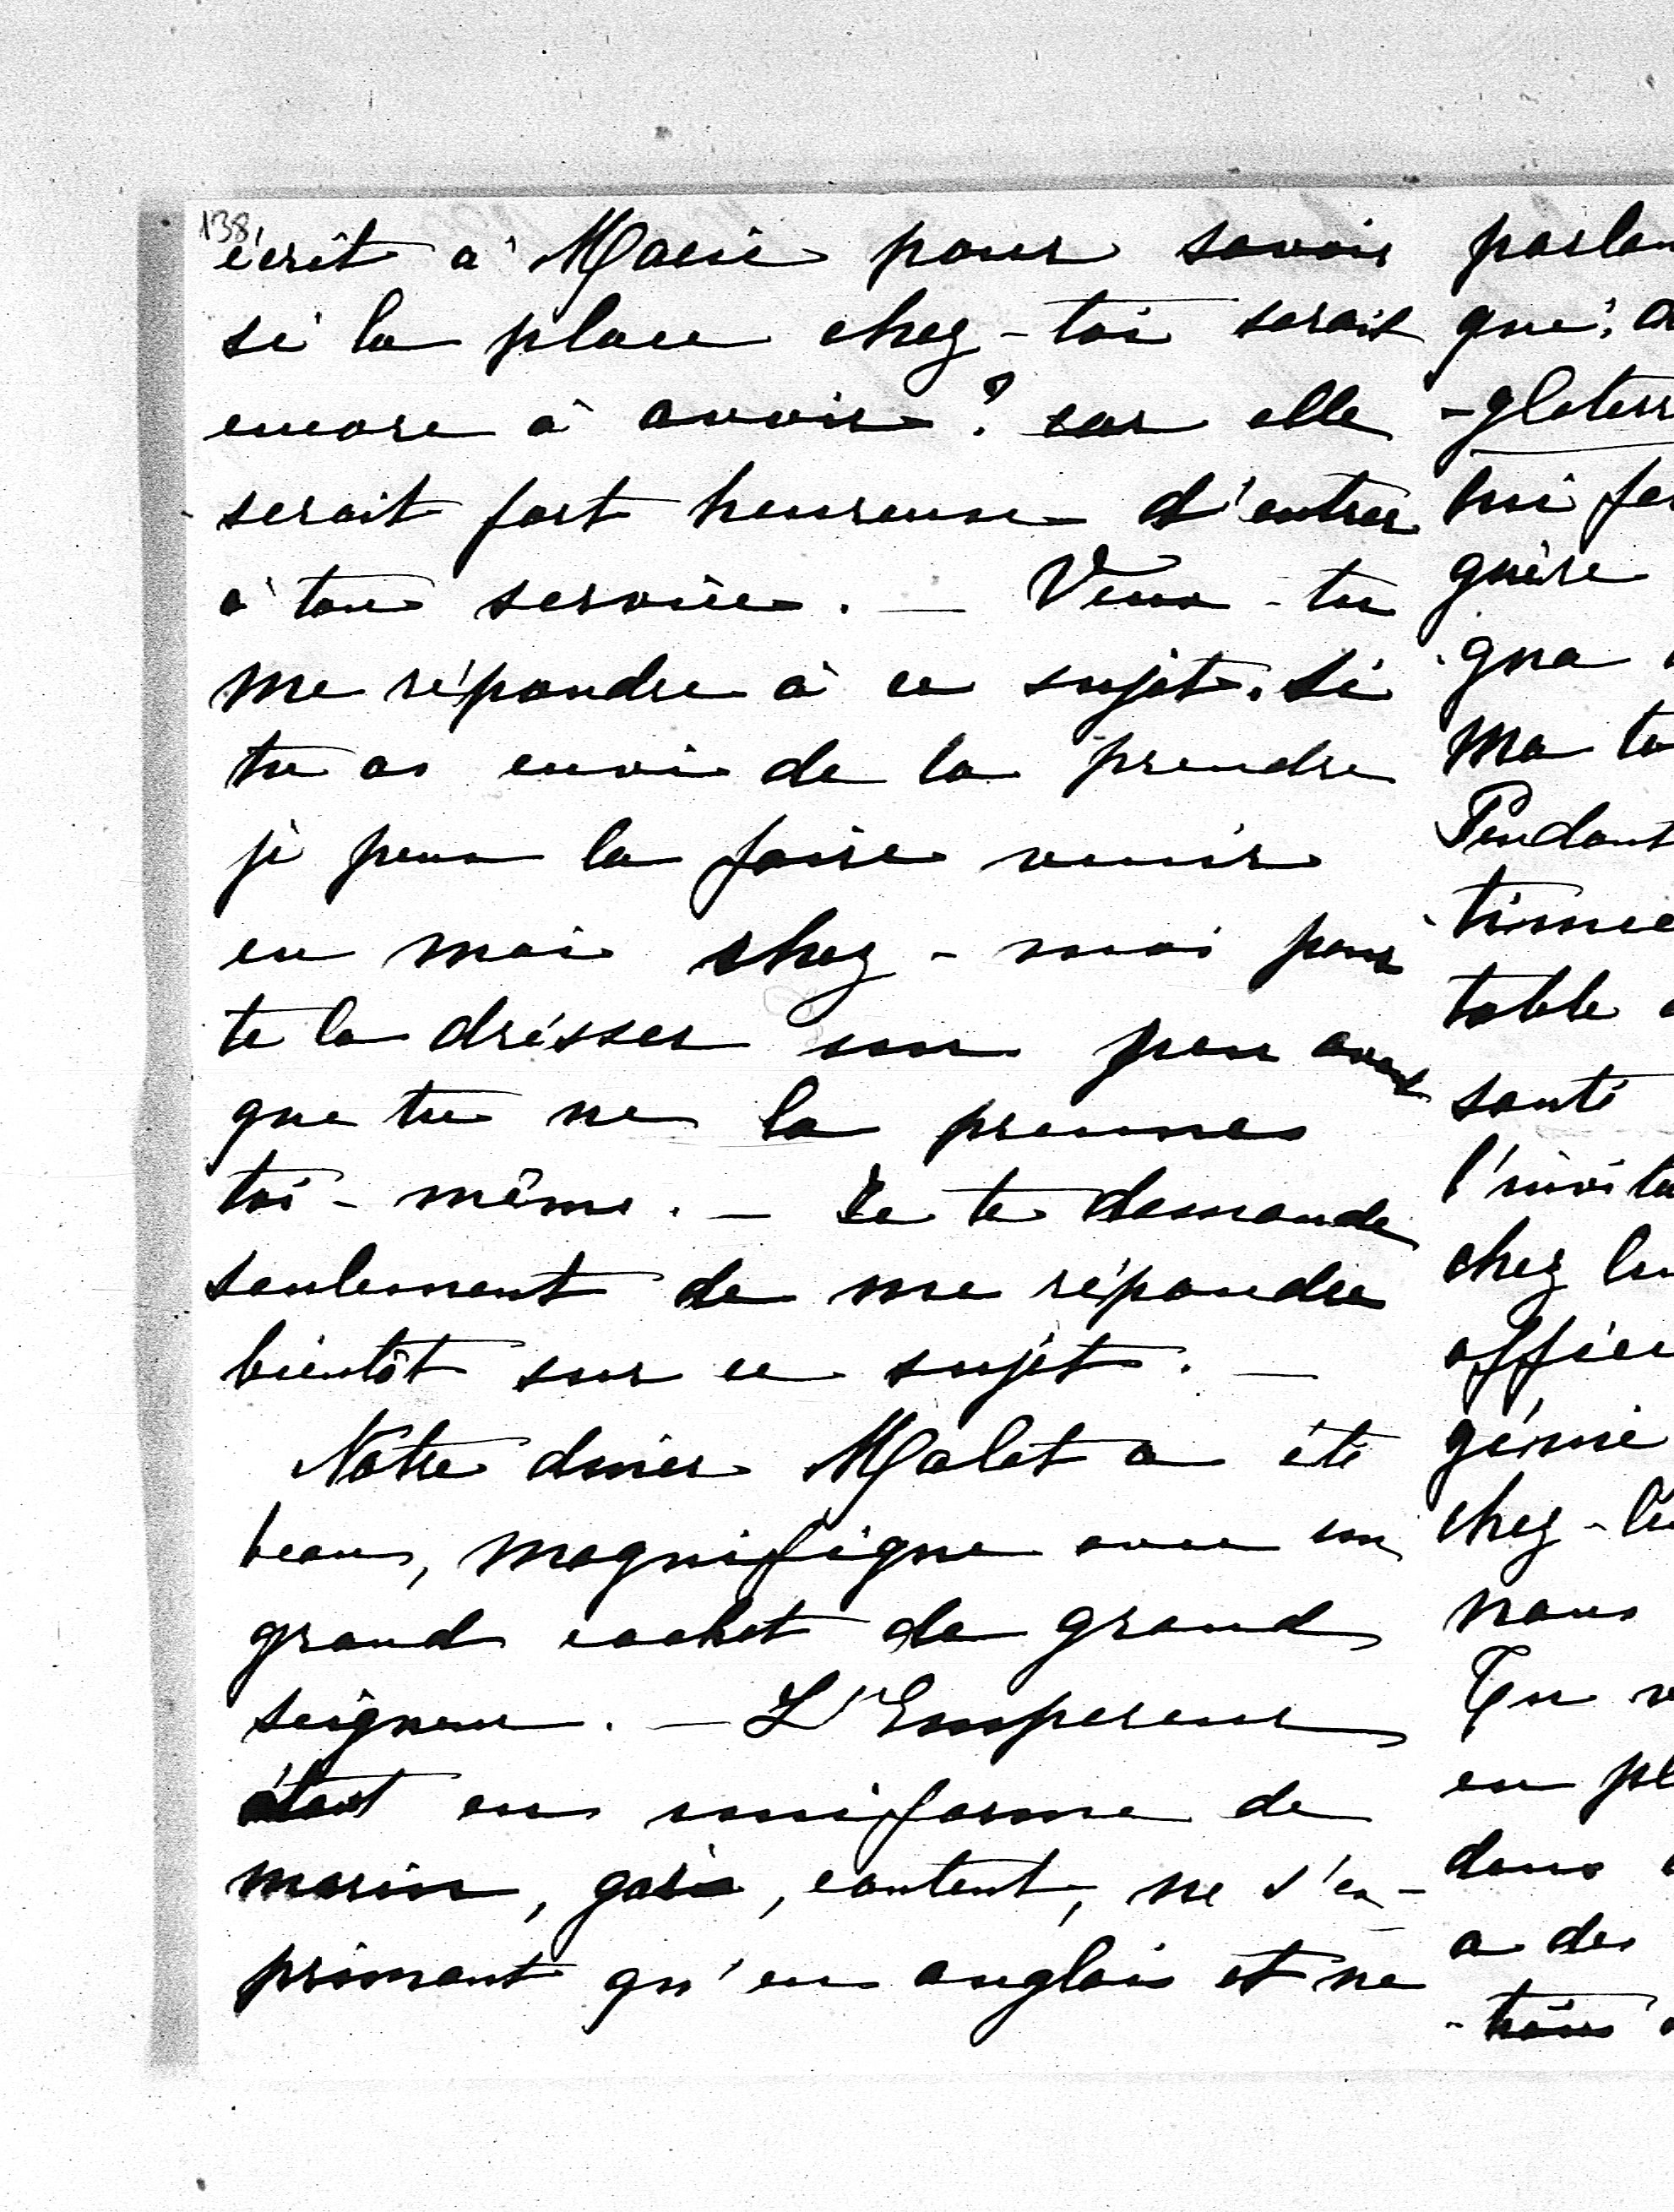 138.
écrit à Marie pour savoir
si la place chez-toi serait
encore à avoir? car elle
serait fort heureuse d'entrer
à ton service. — Veux-tu
me répondre à ce sujet. Si
tu as envie de la prendre
je peux la faire venir
en mai chez-moi pour
te la drésser un peu avant
que tu ne la prennes
toi-même. — Je te demande
seulement de me répondre
bientôt sur ce sujet. —
Notre diner Malet a été
beau, magnifique avec un
grand cachet de grand
seigneur. — L'Empereur
était en uniforme de
marin, gai, content, ne s'ex-
primant qu'en anglais et ne
parlan
que, a
-gleterr
lui fer
guère
gna
ma ta
Pendant
table
santé
l'invita
chez lu
offici
génie
chez-lu
nous
Tu v
en pl
dans
a des